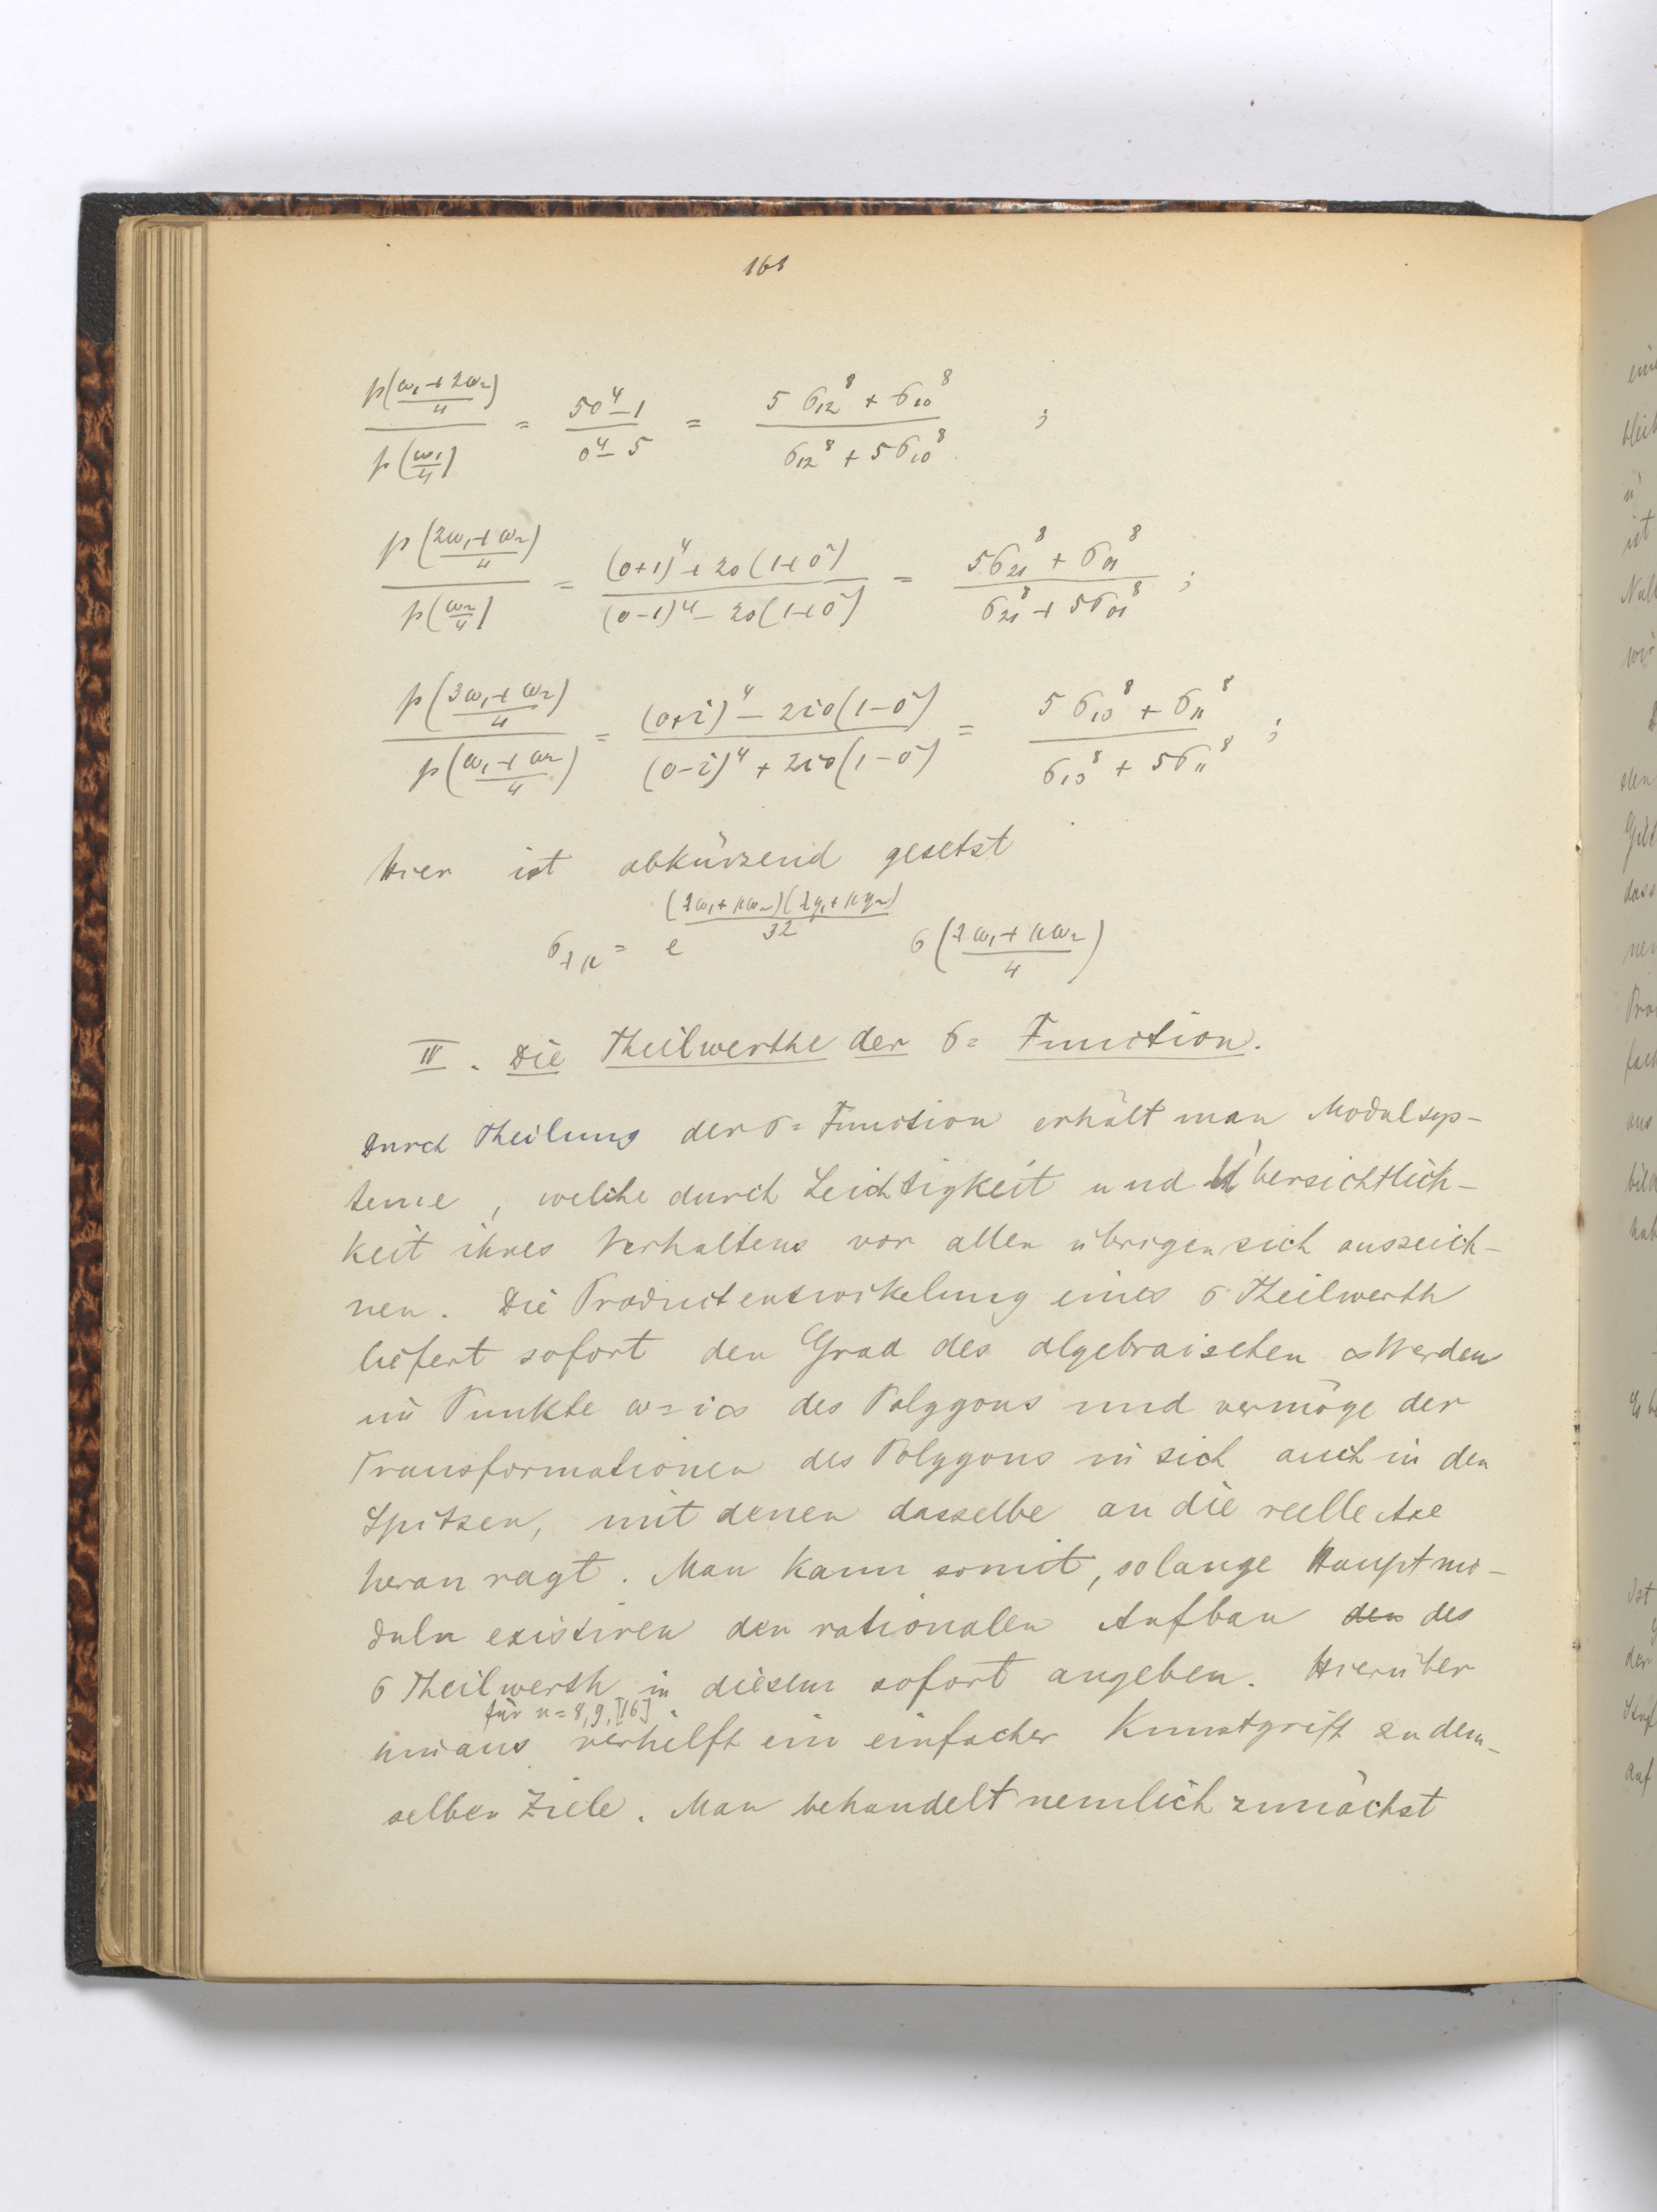 161
p((ω₁+2ω₂)/4) / p(ω₁/4) = (5o⁴−1)/(o⁴−5) = (5σ₁₂⁸+σ₁₀⁸)/(σ₁₂⁸+5σ₁₀⁸) ;
p((2ω₁+ω₂)/4) / p(ω₂/4) = ((o+1)⁴+2o(1+o²))/((o−1)⁴−2o(1+o²)) = (5σ₂₁⁸+σ₀₁⁸)/(σ₂₁⁸+5σ₀₁⁸) ;
p((3ω₁+ω₂)/4) / p((ω₁+ω₂)/4) = ((o+i)⁴−2io(1−o²))/((o−i)⁴+2io(1−o²)) = (5σ₁₃⁸+σ₁₁⁸)/(σ₁₃⁸+5σ₁₁⁸) ;
Hier ist abkürzend gesetzt
σ_λμ = e^((λω₁+μω₂)(λη₁+μη₂)/32) σ((λω₁+μω₂)/4)
IV. Die Theilwerthe der σ= Function.
Durch Theilung der σ= Function erhält man Modulsys-
teme, welche durch Leichtigkeit und Übersichtlich-
keit ihres Verhaltens vor allen übrigen sich auszeich-
nen. Die Productentwikelung eines σ Theilwerth
liefert sofort den Grad des algebraischen ∞ Werdens
im Punkte ω=i∞ des Polygons und vermöge der
Transformationen des Polygons in sich auch in den
Spitzen, mit denen dasselbe an die reelle Axe
heran ragt. Man kann somit, solange Hauptmo-
duln existiren den rationalen Aufbau den des
σ Theilwerth in diesem sofort angeben. Hierüber
für n=8,9,[16]
hinaus verhilft ein einfacher Kunstgriff zu dem-
selben Ziele. Man behandelt nemlich zunächst